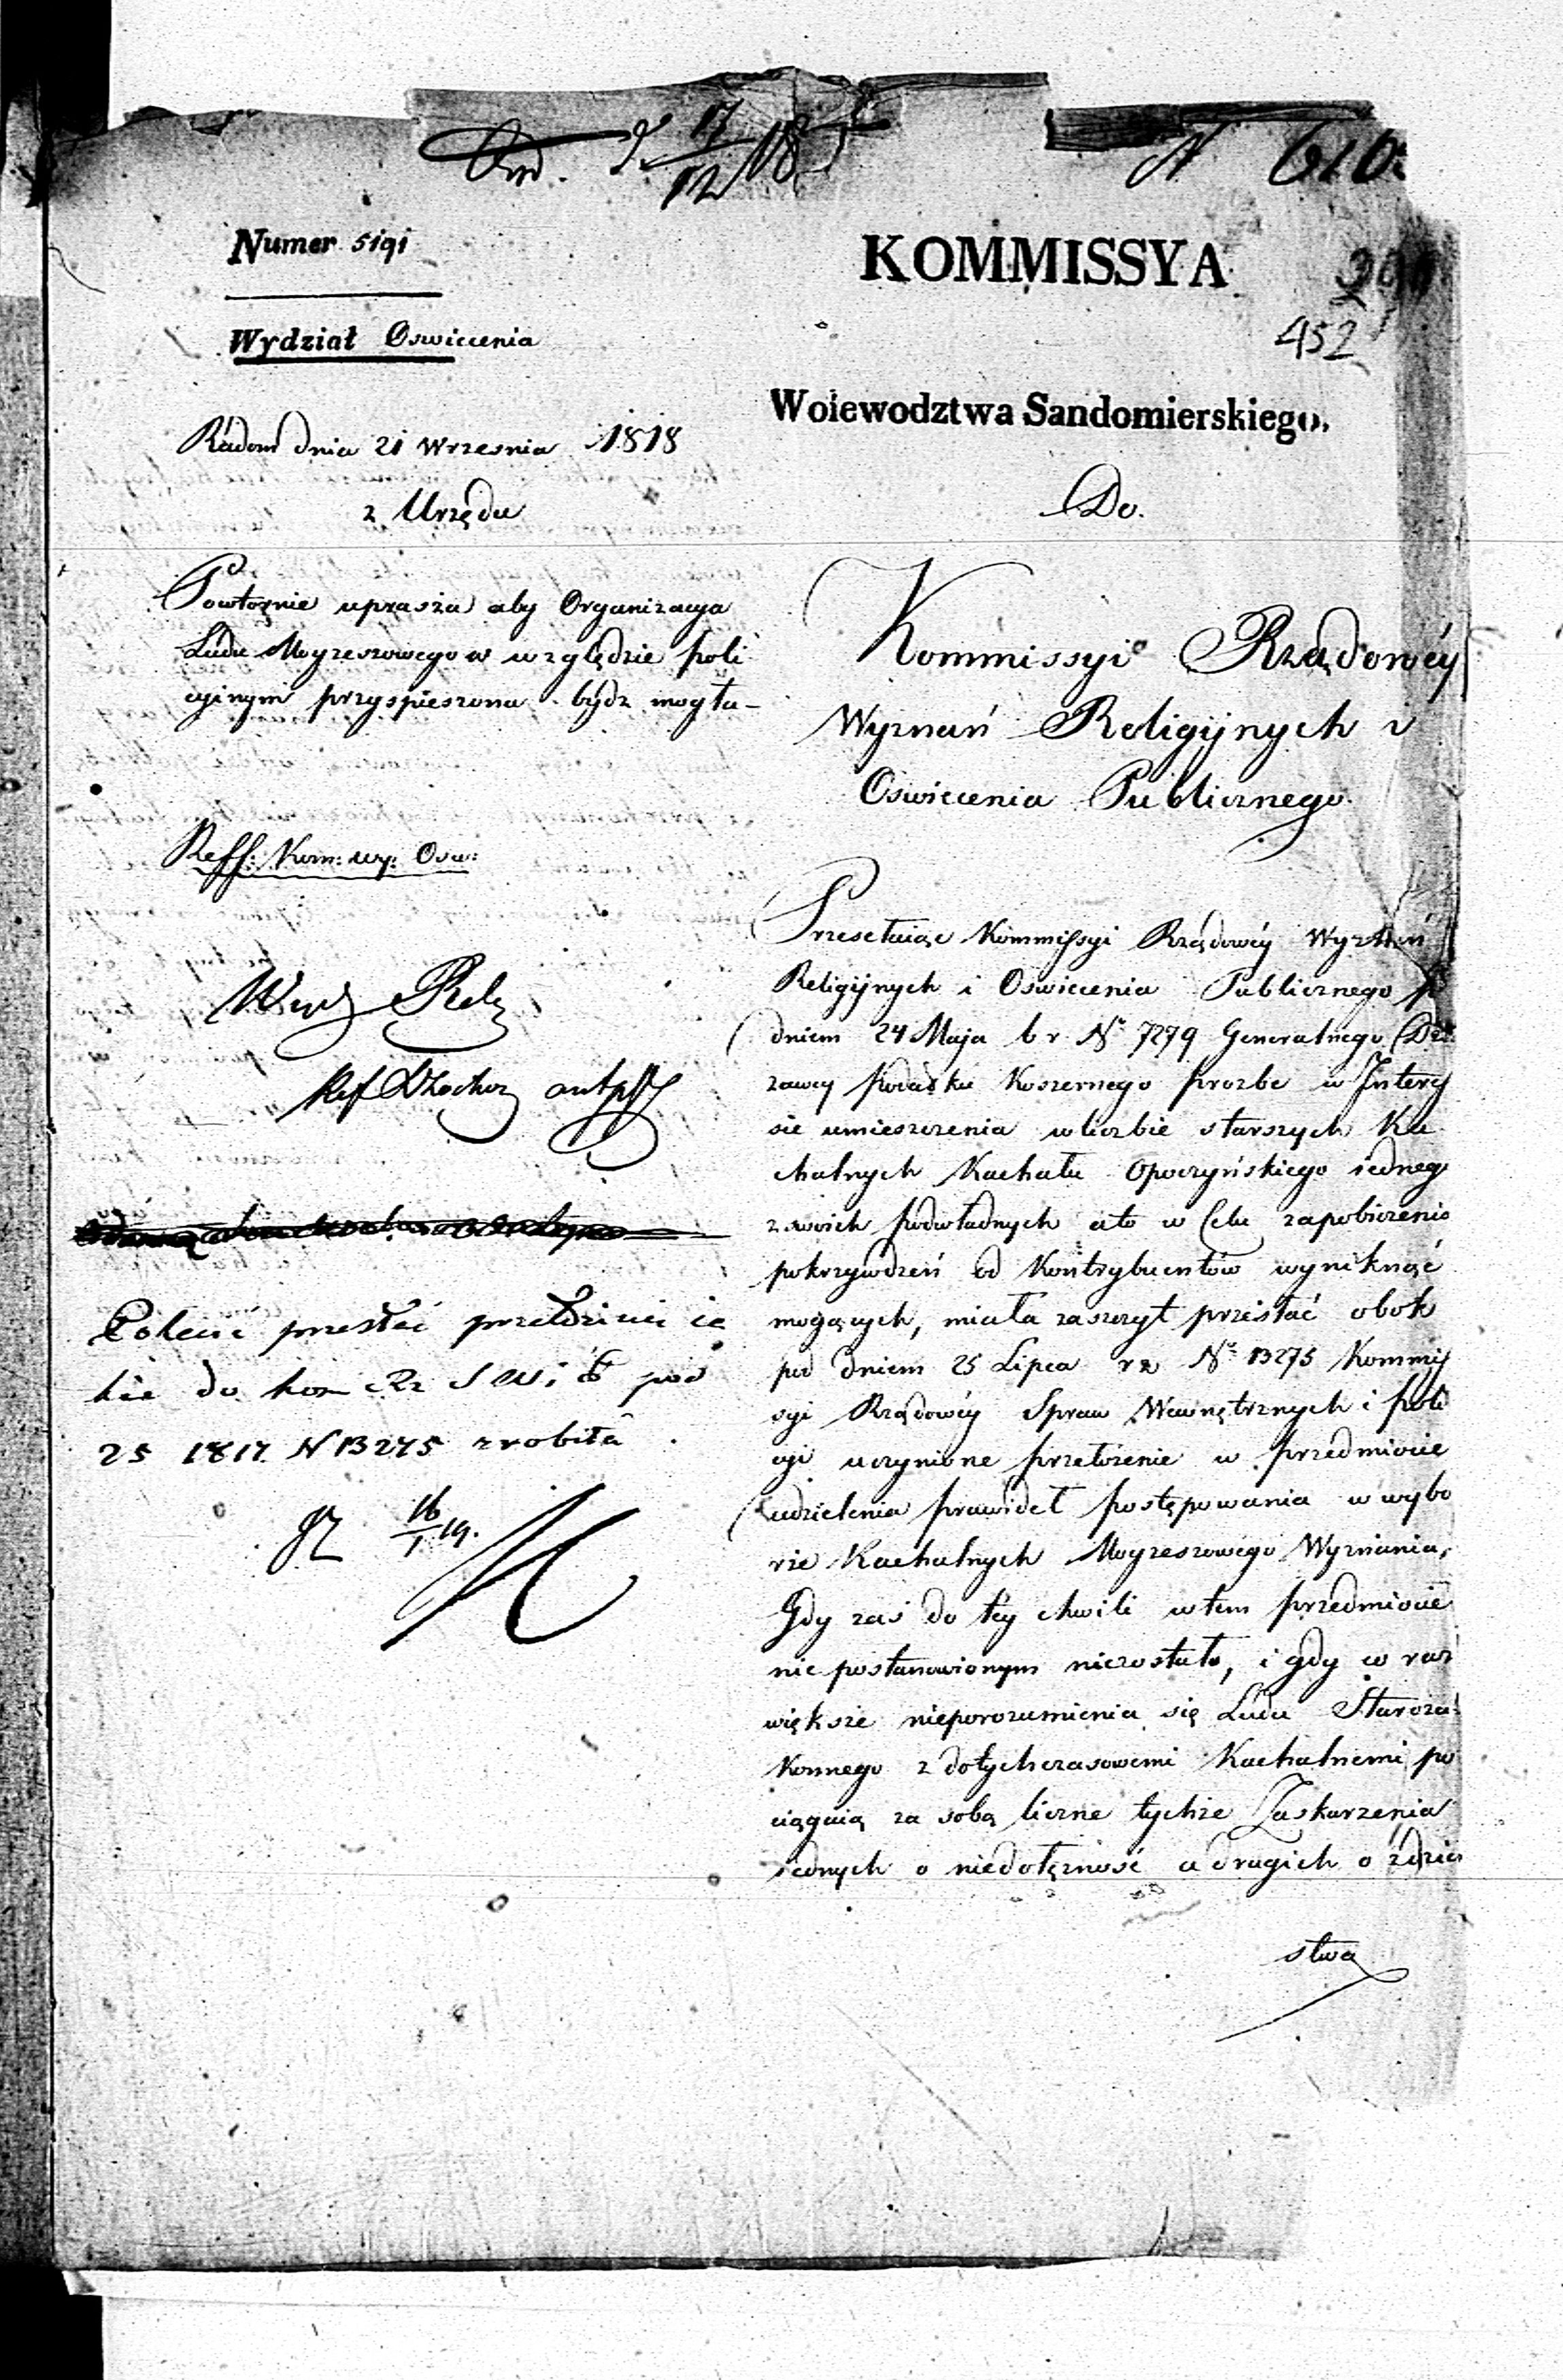 N 610
Numer 5191
KOMMISSYA
452
Wydział Oswiecenia
Woiewodztwa Sandomierskiego.
Radom dnia 21 Wrzesnia 1818
z Urzędu
Do.
Powtornie uprasza aby Organizacya
Ludu Moyzeszowego w względzie poli
cyinym przyspieszona bydz mogła –
Kommissyi Rządowéy
Wyznań Religijnych i
Oswiecenia Publicznego.
Reff: Kom: wy: Osw:
Przesełaiąc Kommissyi Rządowéy Wyznań
Religijnych i Oswiecenia Publicznego
dniem 24 Maja b r No 7279 Generalnego Dzie
rzawcy podatku Koszernego prozbe w Intery
sie umieszczenia w liczbie starszych Ka
chalnych Kachału Opoczyńskiego iednego
z swoich podwładnych a to w Celu zapobieżenia
pokrzywdzeń od Kontrybuentów wyniknąć
mogących, miała zaszczyt przesłać obok
pod dniem 25 Lipca r z No 13275 Kommis
syi Rządowéy Spraw Wewnętrznych i poli
cyi uczynione przełożenie w przedmiocie
udzielenia prawideł postępowania w wybo
rze Kachalnych Moyzeszowego Wyznania,
Gdy zaś do téy chwili w tem przedmiocie
nic postanowionym niezostało, i gdy co raz
większe nieporozumienia się Ludu Staroza
konnego z dotychczasowemi Kachalnemi po
ciągaią za sobą liczne tychże Zaskarzenia
iednych o niedołęzność a drugich o zdzier
stwa
przesłać
do Kom Rz S W i P pod
25 1817 N 13275 zrobiła
16/1 19.